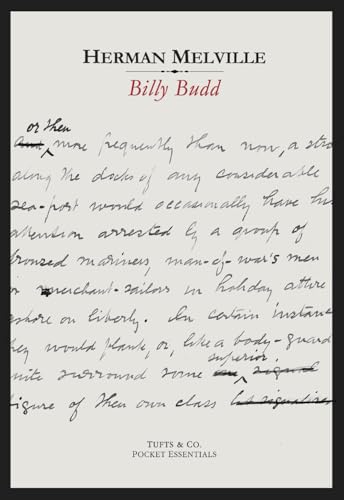 HERMAN MELVILLE
Billy Budd
or then
And more frequently than now, a stro
along the docks of any considerable
sea-port would occasionally have his
attention arrested by a group of
bronzed mariners, man-of-war's men
or merchant-sailors in holiday attire
ashore on liberty. In certain instanc
hey would flank, or, like a body-guard
uite surround some
superior
figure of their own class
TUFTS & CO.
POCKET ESSENTIALS